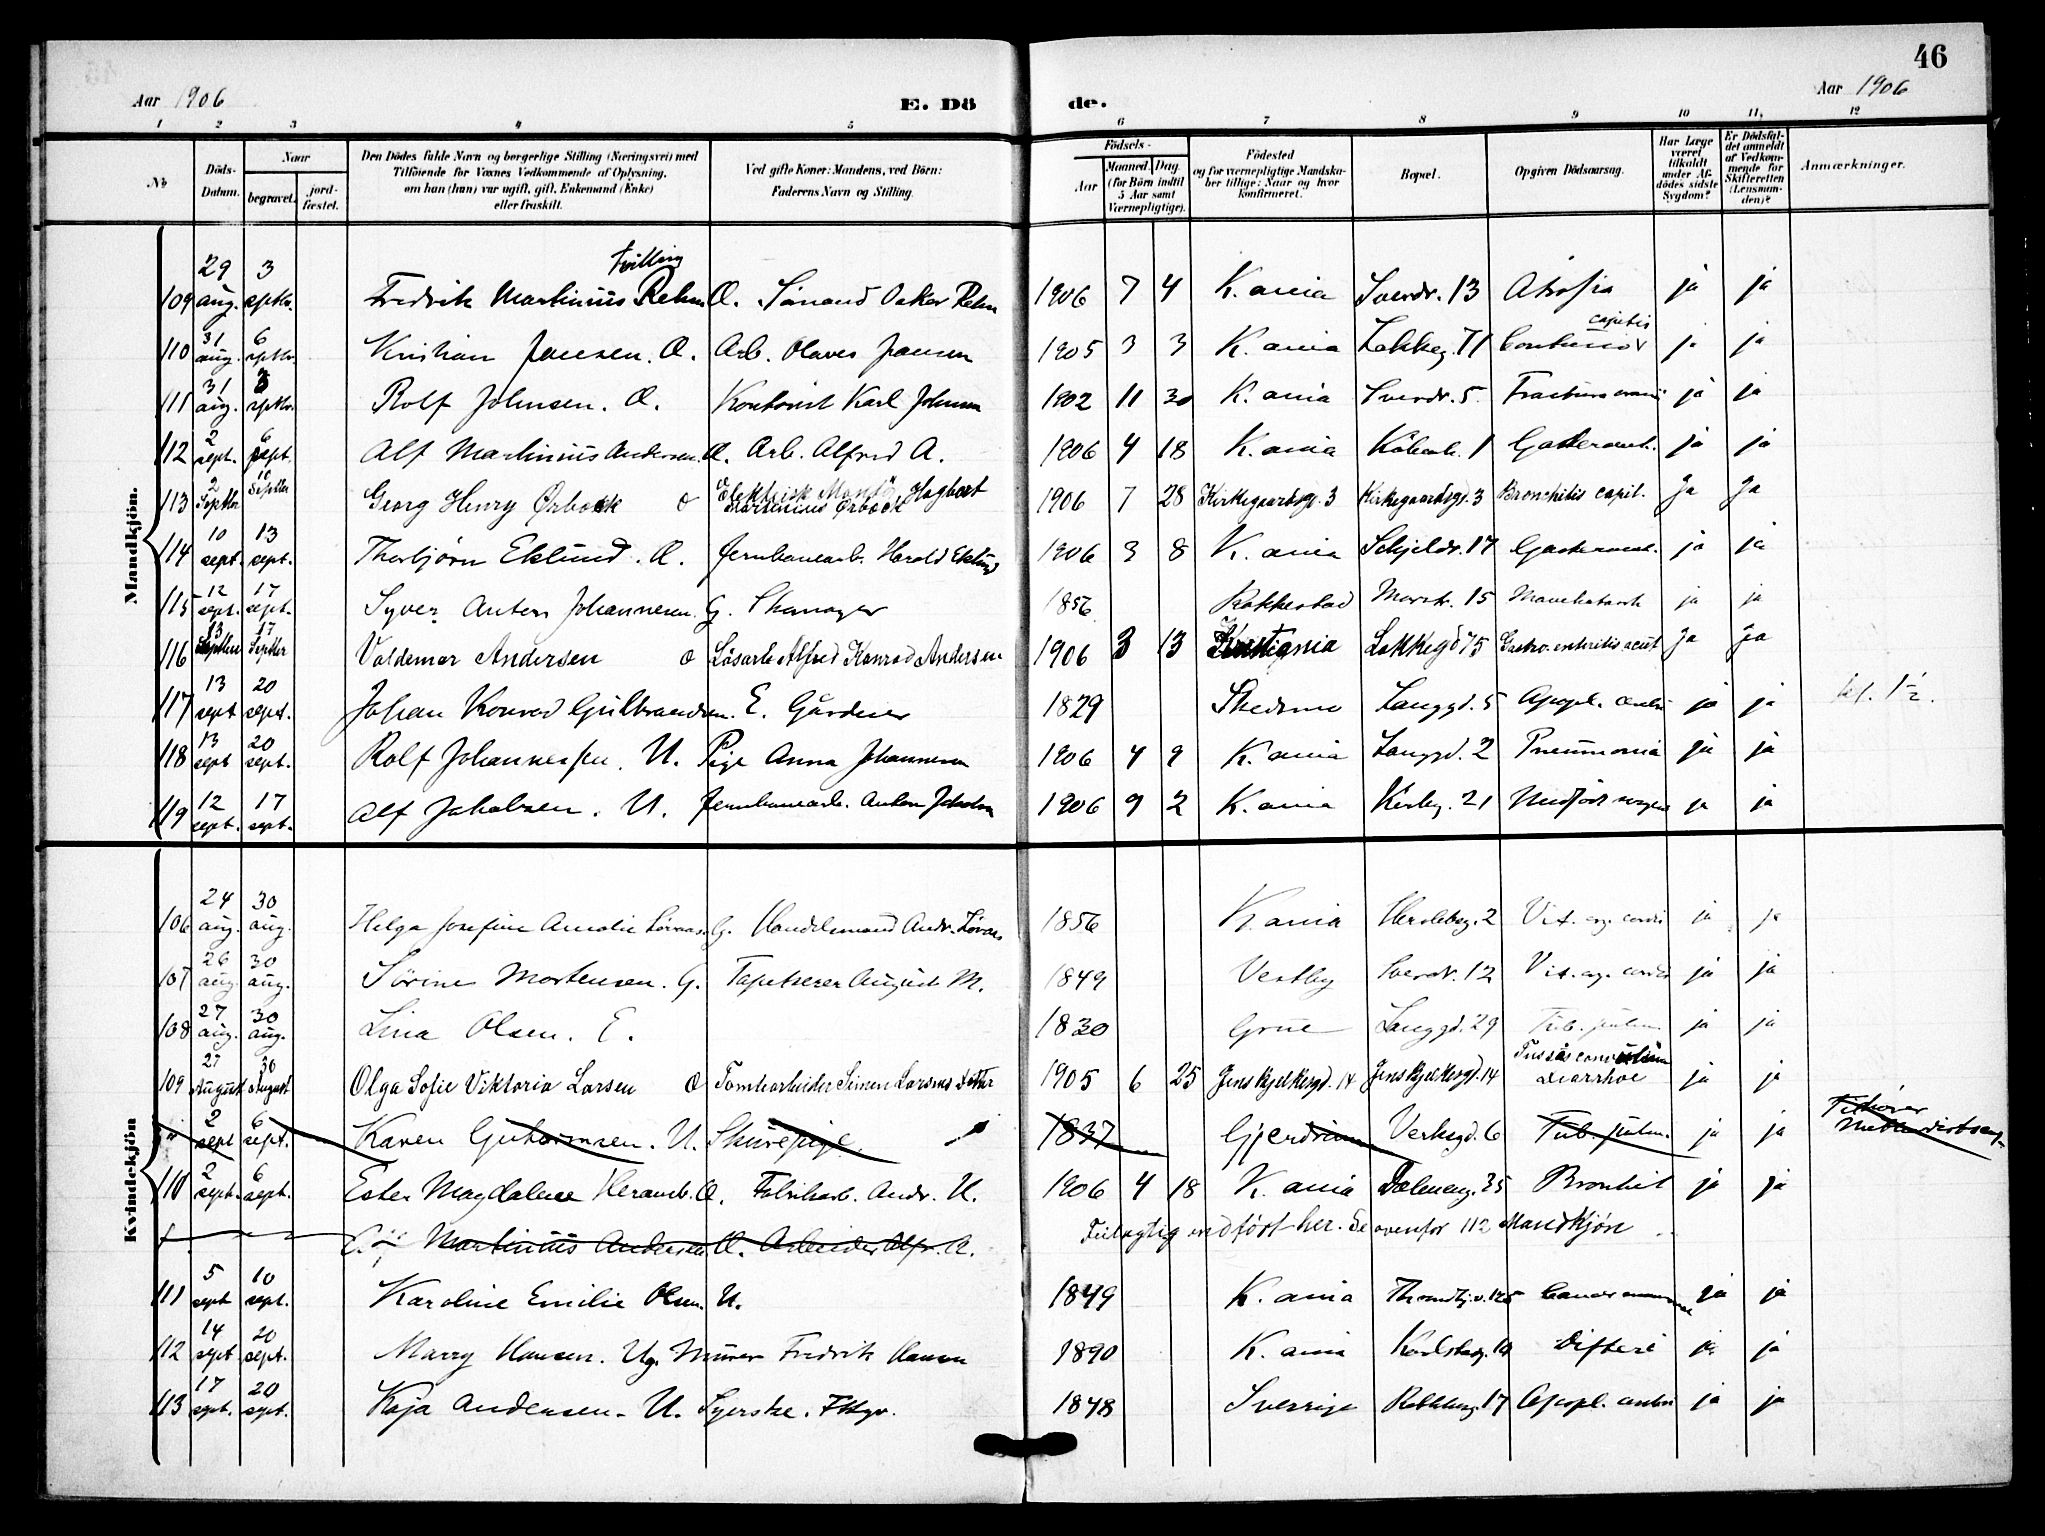 46
Aar 1906
E. Dö
de.
Aar 1906
1 2 3 4 5 6 7 8 9 10 11. 12
No
Döds-Datum.
Naar
begravet.
jord-fæstet.
Den Dödes fulde Navn og borgerlige Stilling (Næringsvei) med
Tilföiende for Voxnes Vedkommende af Oplysning,
om han (hun) var ugift, gift, Enkemand (Enke)
eller fraskilt.
Ved gifte Koner: Mandens, ved Börn:
Faderens Navn og Stilling.
Födsels-
Aar
Maaned. Dag.
(for Börn indtil
5 Aar samt
Værnepligtige).
Födested
og for værnepligtige Mandska-
ber tillige: Naar og hvor
konfirmeret.
Bopæl.
Opgiven Dödsaarsag.
Har Læge
været
tilkaldt
under Af-
dödes sidste
Sygdom?
Er Dödsfal-
det anmeldt
af Vedkom-
mende for
Skifteretten
(Lensman-
den)?
Anmærkninger.
Mandkjön.
tvilling
109 29 aug. 3 septbr. Fredrik Martinius Rehn Æ. Oskar Rehn 1906 7 4 K.ania Sverdr. 13 Atrofia ja ja
110 31 aug. 6 septbr. Kristian Jansen. Æ. Arb. Olaves Jansen 1905 3 3 K.ania Lakkeg. 71 Contusio capitis ja ja
111 31 aug. 3 septbr. Rolf Johnsen. Æ. Kontorist Karl Johnsen 1902 11 30 K.ania Sverdr. 5. Fractura cranii ja ja
112 2 sept. 6 sept. Alf Martinius Andersen. Æ. Arb. Alfred A. 1906 4 18 K.ania 1 ja ja
113 2 Septbr 10 Septbr Georg Henry Ørbæck Æ Elektrisk Montör Hagbart Martinius Ørbæck 1906 7 28 Kirkegaardsgd. 3 Kirkegaardsgd. 3 Bronchitis capil. Ja Ja
114 10 sept. 13 sept. Thorbjørn Eklund. Æ. Jernbanearb. Harald Eklund 1906 3 8 K.ania Schjeldr. 17 ja ja
115 12 sept. 17 sept. Syver Anton Johannesen. G. Skomager 1856 Rakkestad 15 Mavekatarrh ja ja
116 13 Septbr 17 Septbr Valdemar Andersen Æ Løsarb. Alfred Konrad Andersen 1906 3 13 Kristiania Lakkegd 75 Gastro-enteritis acut Ja Ja
117 13 sept 20 sept. Johan Konrad Gulbrandsen. E. Gårdner 1829 Skedsmo Langgd. 5 Apopl. cerebri ja ja kl. 1½.
118 13 sept 20 sept. Rolf Johannessen. U. Pige Anna Johannesen 1906 4 9 K.ania Langgd. 2 Pneumonia ja ja
119 12 sept. 17 sept. Alf Jakobsen. U. Jernbanearb. Anton Jakobsen 1906 9 2 K.ania Kirkeg. 21 Medfødt svaghed ja ja
Kvindekjön
106 24 aug. 30 aug. Helga Josefine Amalie Lörvaas. G. Handelsmand Andr. Lörvaas 1856 K.ania Herslebsg. 2 Vit. org. cordis ja ja
107 26 aug. 30 aug. Sörine Mortensen. G. Tapetserer August M. 1849 Vestby Sverdr. 12 Vit. org. cordis ja ja
108 27 aug. 30 aug. Lina Olsen. E. 1830 Grue Langgd. 29 Tub. pulm. ja ja
109 27 August 30 August Olga Sofie Viktoria Larsen Æ Tomtearbeider Simen Larsens Datter 1905 6 25 Jens Bjelkesgd. 14 Jens Bjelkesgd. 14 Tussis convulsiva Diarrhoe ja ja
" 2 sept 6 sept. Karen Guttormsen. U. Skurepige 1837 Gjerdrum Verksgd. 6 Tub. pulm. ja ja Tilhører
110 2 sept. 6 sept. Ester Magdalene Heramb. Æ. Fabrikarb. Andr. H. 1906 4 18 K.ania Dæleneng. 35 Bronkit ja ja
Martinius Andersen Æ. Arbeider Alfr. A. Feilagtig indført her. Se ovenfor 112 Mandkjön
111 5 sept 10 sept. Karoline Emilie Olsen U. 1849 K.ania Trondhj.v. 125 Cancer mammae ja ja
112 14 sept 20 sept. Marry Hansen. Ug. Murer Fredrik Hansen 1890 K.ania Karlsbog. 10 Difteri ja ja
113 17 sept. 20 sept. Kaja Andersen. U. Syerske. Fttgv. 1848 Sverrige 17 Apopl. cerebri ja ja